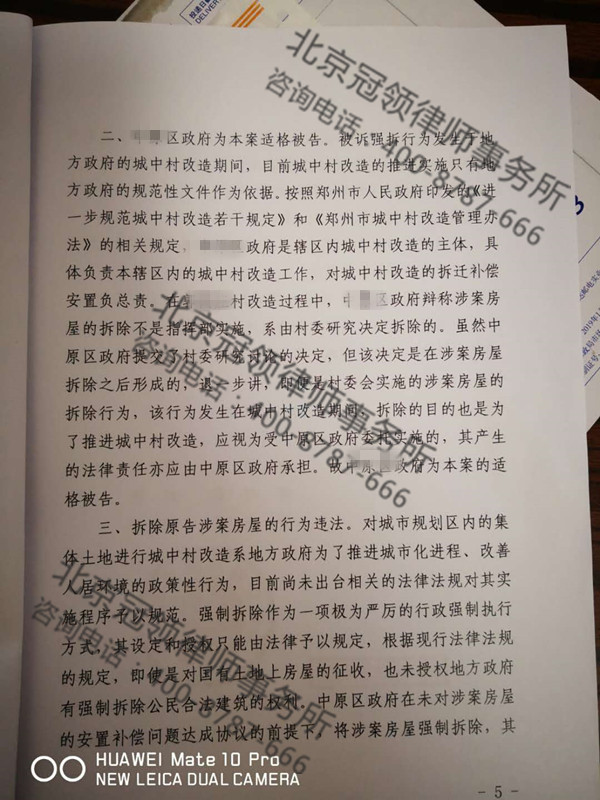 二、中█区政府为本案适格被告。被诉强拆行为发生于地
方政府的城中村改造期间，目前城中村改造的推进实施只有地
方政府的规范性文件作为依据。按照郑州市人民政府印发的《进
一步规范城中村改造若干规定》和《郑州市城中村改造管理办
法》的相关规定，政府是辖区内城中村改造的主体，具
体负责本辖区内的城中村改造工作，对城中村改造的拆迁补偿
安置负总责。在村改造过程中，中区政府辩称涉案房
屋的拆除不是指挥部实施，系由村委研究决定拆除的。虽然中
原区政府提交了村委研究讨论的决定，但该决定是在涉案房屋
拆除之后形成的，退一步讲，即便是村委会实施的涉案房屋的
拆除行为，该行为发生在城中村改造期间，拆除的目的也是为
了推进城中村改造，应视为受中原区政府委托实施的，其产生
的法律责任亦应由中原区政府承担。故中原政府为本案的适
格被告。
三、拆除原告涉案房屋的行为违法。对城市规划区内的集
体土地进行城中村改造系地方政府为了推进城市化进程、改善
人居环境的政策性行为，目前尚未出台相关的法律法规对其实
施程序予以规范。强制拆除作为一项极为严厉的行政强制执行
方式，其设定和授权只能由法律予以规定，根据现行法律法规
的规定，即使是对国有土地上房屋的征收，也未授权地方政府
有强制拆除公民合法建筑的权利。中原区政府在未对涉案房屋
的安置补偿问题达成协议的前提下，将涉案房屋强制拆除，其
- 5 -
北京冠领律师事务所
咨询电话：400-8787-666
北京冠领律师事务所
咨询电话：400-8787-666
北京冠领律师事务所
咨询电话：400-8787-666
HUAWEI Mate 10 Pro
NEW LEICA DUAL CAMERA